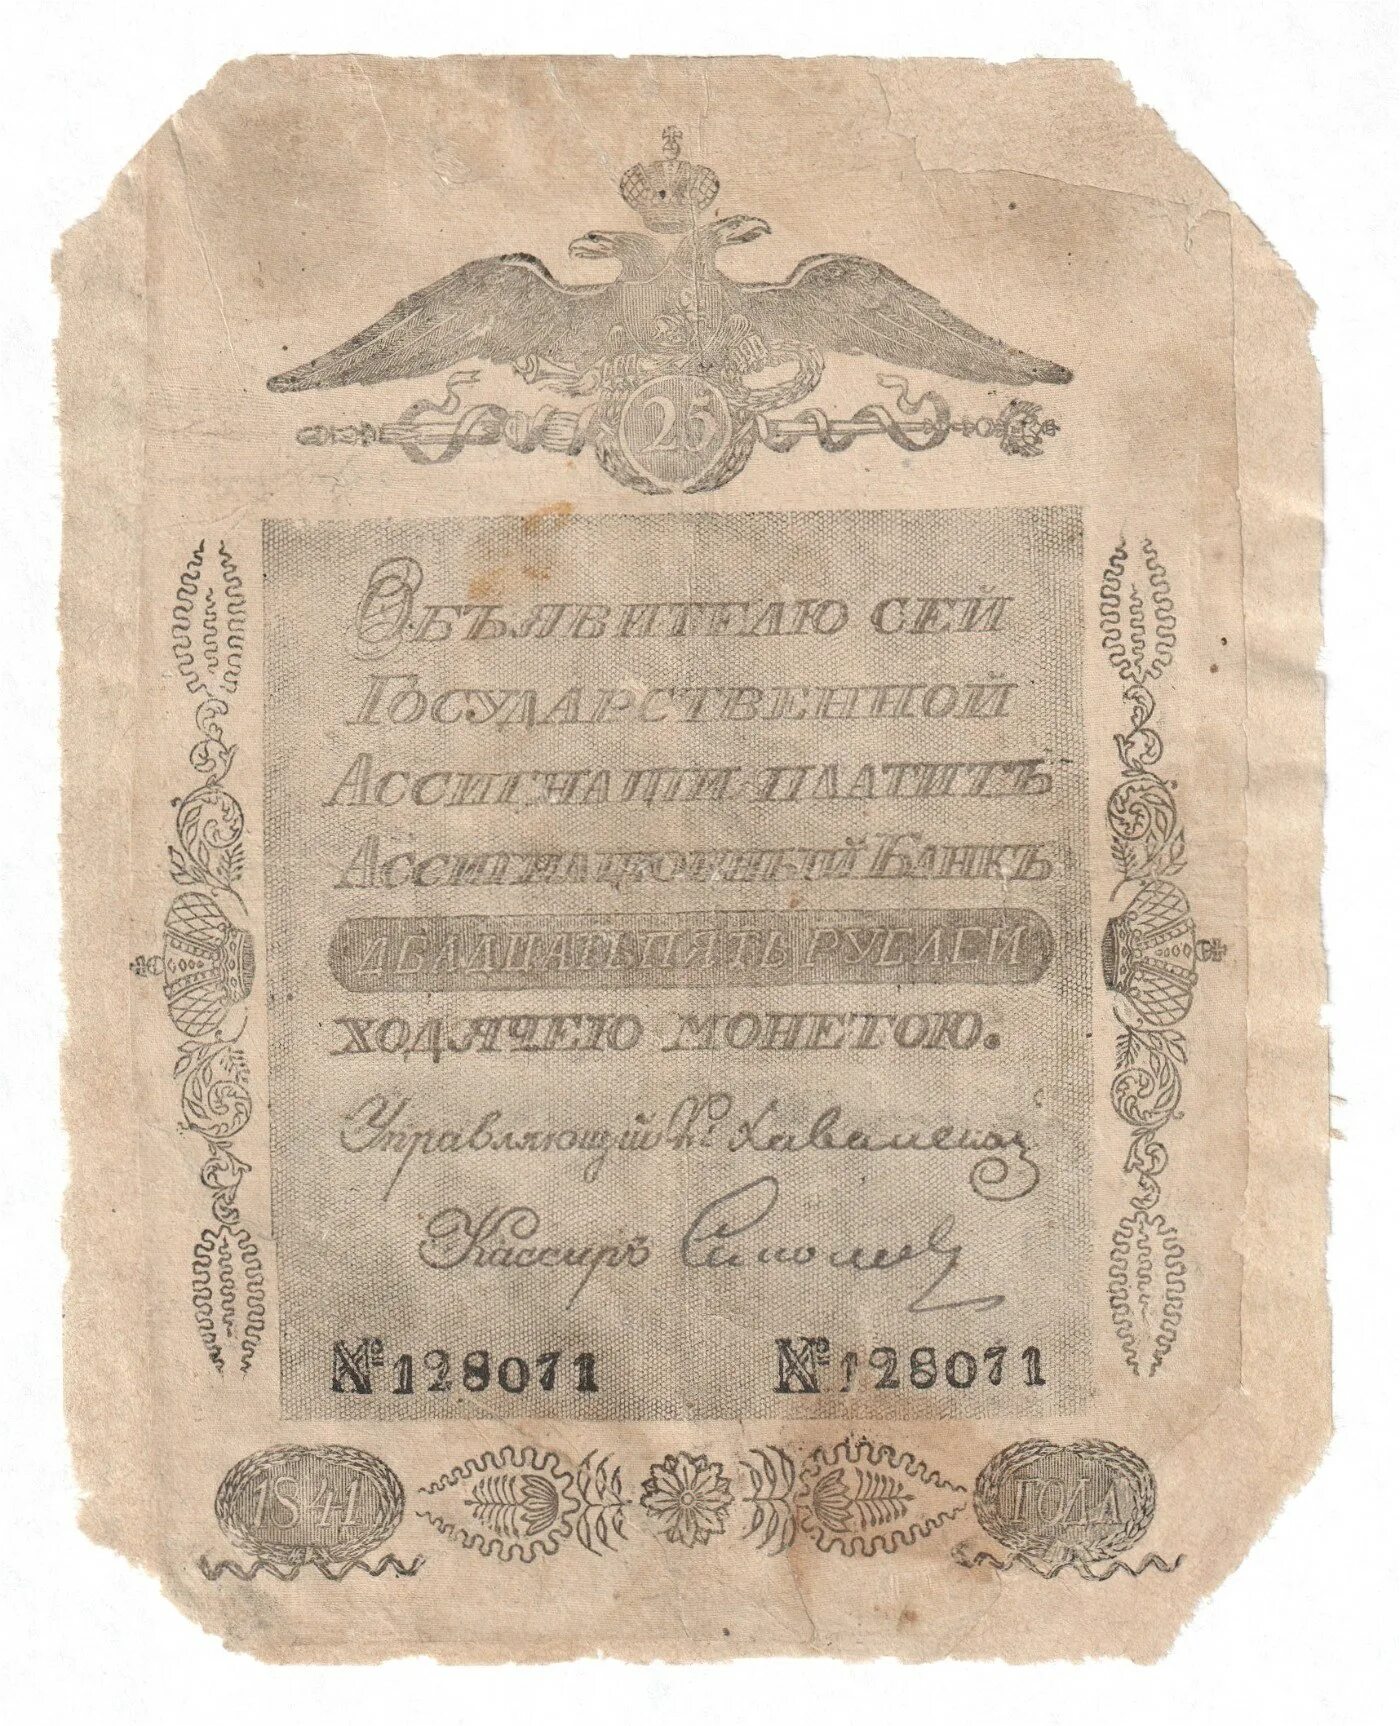 25
Объявителю сей
Государственной
Ассигнаціи платитъ
Ассигнаціонный Банкъ
двадцать пять рублей
ходячею монетою.
Управляющій
Кассиръ
№ 128071 № 128071
1841 года